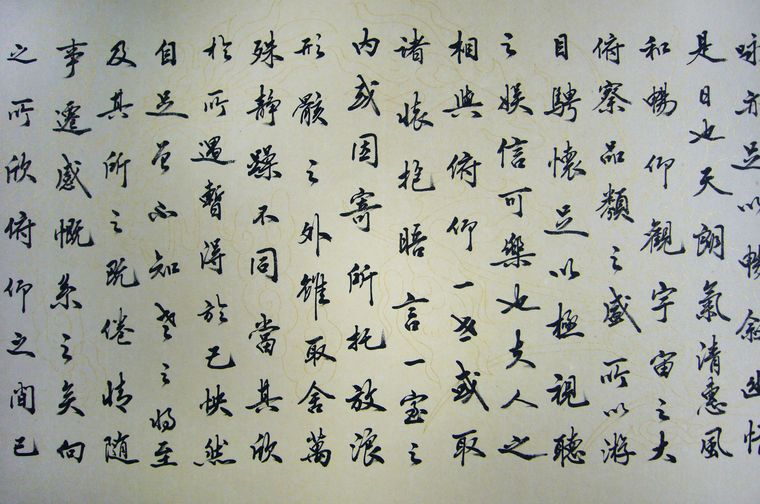 咏亦足以暢叙幽情
是日也天朗氣清惠風
和暢仰觀宇宙之大
俯察品類之盛所以游
目騁懷足以極視聽
之娱信可樂也夫人之
相與俯仰一世或取
諸懷抱晤言一室之
内或因寄所托放浪
形骸之外雖取舍萬
殊静躁不同當其欣
於所遇暫得於己怏然
自足曾不知老之将至
及其所之既倦情随
事遷感慨系之矣向
之所欣俯仰之間已